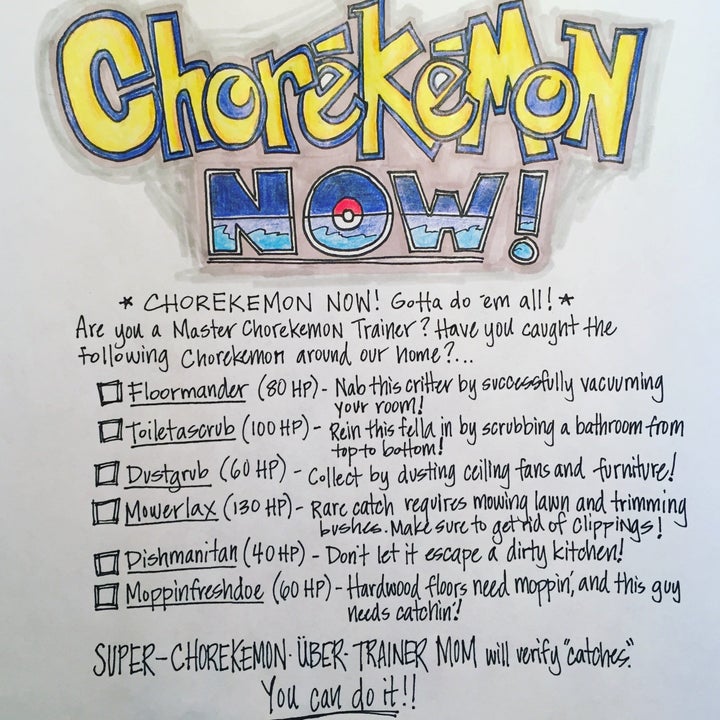 Chorekemon
NOW!
* CHOREKEMON NOW! Gotta do 'em all! *
Are you a Master Chorekemon Trainer? Have you caught the
following Chorekemon around our home?...
Floormander (80 HP) - Nab this critter by successfully vacuuming
your room!
Toiletascrub (100 HP) - Rein this fella in by scrubbing a bathroom from
top to bottom!
Dustgrub (60 HP) - Collect by dusting ceiling fans and furniture!
Mowerlax (130 HP) - Rare catch requires mowing lawn and trimming
bushes. Make sure to get rid of clippings!
Dishmanitan (40 HP) - Don't let it escape a dirty kitchen!
Moppinfreshdoe (60 HP) - Hardwood floors need moppin', and this guy
needs catchin'!
SUPER-CHOREKEMON-ÜBER-TRAINER MOM will verify "catches."
You can do it!!